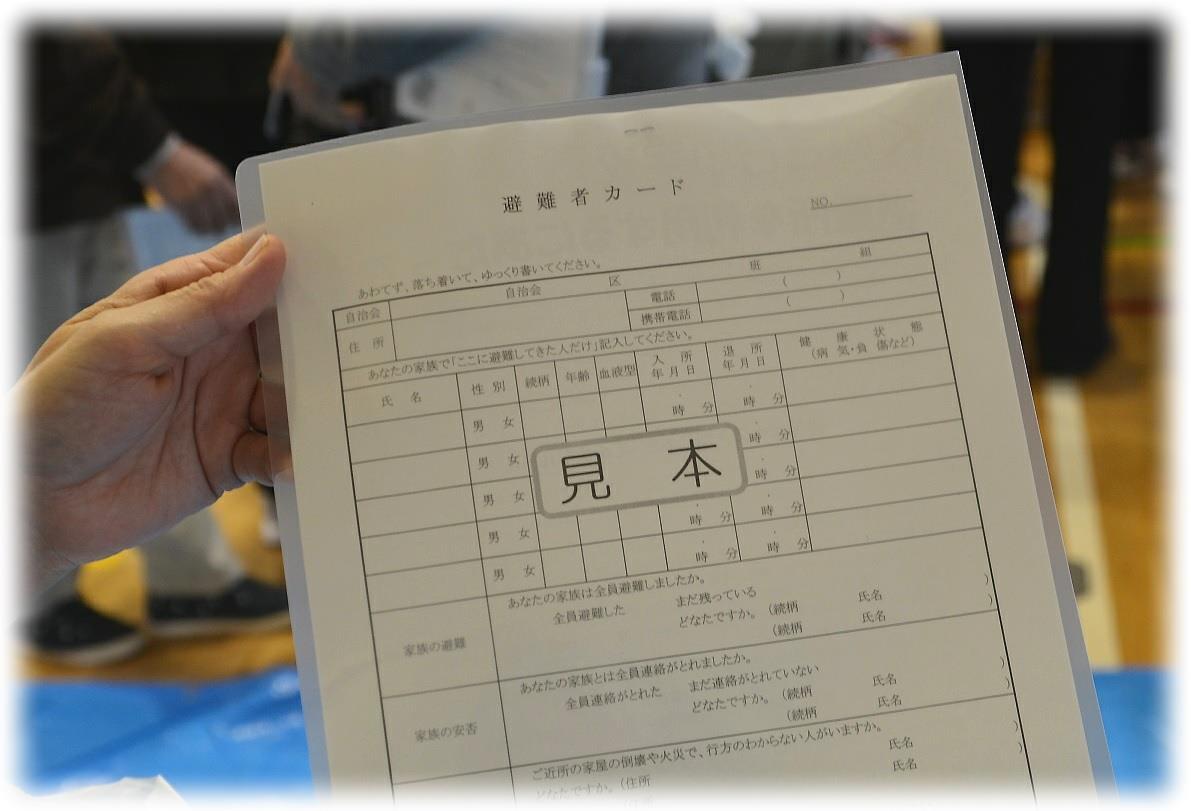 避難者カード
NO.
あわてず、落ち着いて、ゆっくり書いてください。
自治会 自治会 区 班 組
住所 電話 ( )
携帯電話 ( )
あなたの家族で「ここに避難してきた人だけ」記入してください。
氏名 性別 続柄 年齢 血液型 入所年月日 退所年月日 健康状態(病気・負傷など)
男 女 ・ 時 分 ・ 時 分
男 女 ・ 時 分
見本
男 女 ・ 時 分
男 女 ・ 時 分 ・ 時 分
男 女 ・ 時 分 ・ 時 分
家族の避難
あなたの家族は全員避難しましたか。
全員避難した まだ残っている
どなたですか。(続柄 氏名 )
(続柄 氏名 )
家族の安否
あなたの家族とは全員連絡がとれましたか。
全員連絡がとれた まだ連絡がとれていない
どなたですか。(続柄 氏名 )
(続柄 氏名 )
ご近所の家屋の倒壊や火災で、行方のわからない人がいますか。
どなたですか。(住所 氏名 )
氏名 )